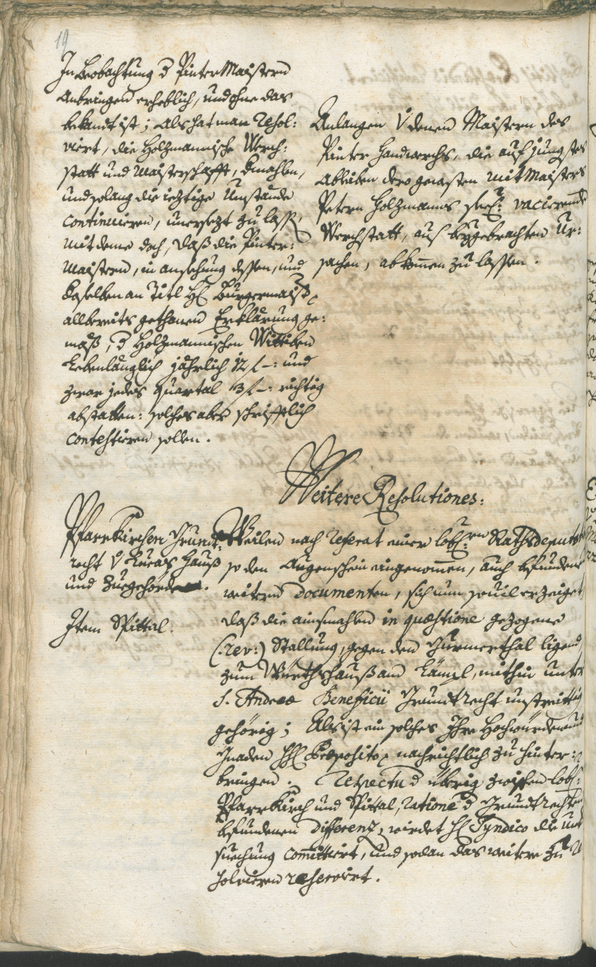 19
In Beobachtung d Pinter Maistern
Anbringen erheblich, und ohne das
bekandt ist; Als hat man resol:
viert, die Holzmannische Werch:
statt und Maisterschafft, dermahlen,
und solang die ietzige Umstände
continuieren, unersezt zu lassen,
mit deme doch, daß die Pinter:
Maistern, in ansehung dessen, und
daselben an Titl H: Burgermaister
allbereits gethanen Erklärung ge:
mäß, d Holzmannischen Wittiben
Lebenlänglich jährlich 12 f –: und
zwar jedes Quartal 3 f –: richtig
abstatten: solches aber schrifftlich
contestieren sollen.
Anlangen V denen Maistern des
Pinter Handwerchs, die auf jüngstes
Ableiben dero gewesten Mit Maisters
Petern Holzmanns seel: vacierende
Werchstatt, auf beygebrachten Ur:
sachen, abkommen zu lassen.
Weitere Resolutiones:
Pfarrkirchen Grund:
recht V Hauß
und Zugehör
Item Spittal.
Weilen nach Referat einer löbl: Rathsdeputation
so den Augenschein eingenommen, auch befundenen
weitern Documenten, sich nun souil erzeiget
daß die ainsmahlen in quaestione gezogene
(: rev:) Stallung, gegen den Thurnerthal ligend
zum Würthshauß am Lämpl, mithin unter
S. Andreae Beneficii Grundtrecht unstreittig
gehörig; Als ist ein solches Ihro Hochwürden und
Gnaden H: H: Proposito, nachrichtlich zu hinter:
bringen. Respectu d übrig zwischen löbl:
Pfarrkirch und Spittal, ratione d Grundtrechten
befundenen differenz, wirdet H: Syndico die unter
suechung committirt, und sodan das weitere zu re
solvieren reservirt.